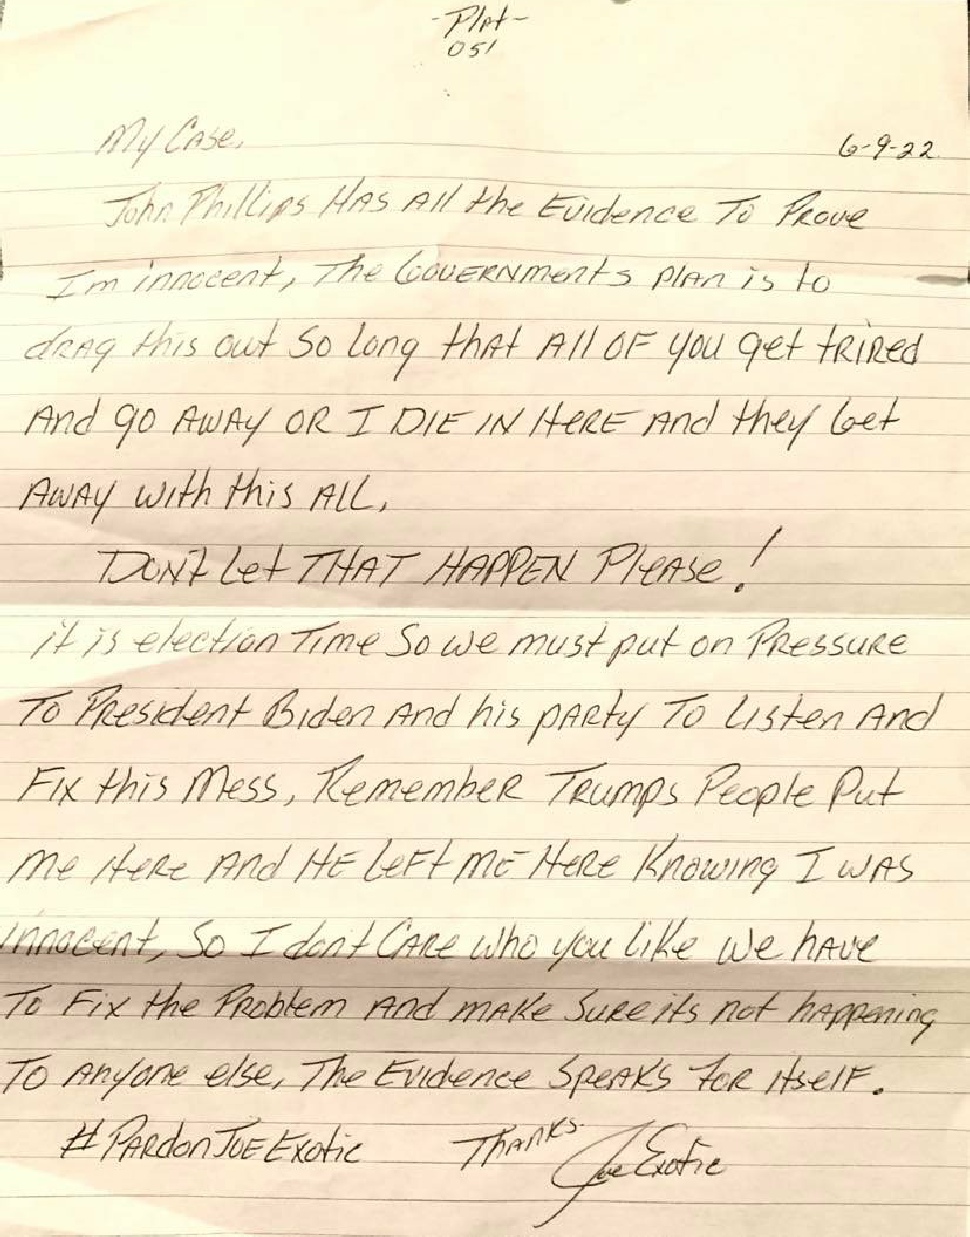 -Plat-
051
My Case,
6-9-22
John Phillips Has All the Evidence To Prove
Im innocent, The Governments plan is to
drag this out So long that All OF you get trired
And go AWAY OR I DIE IN HERE And they Get
AWAY with this ALL.
DON'T Let THAT HAPPEN Please!
it is election Time So we must put on Pressure
To President Biden And his party To Listen And
Fix this Mess, Remember Trumps People Put
me Here And HE LEFT ME Here Knowing I WAS
innocent, So I dont CARE who you like we have
To Fix the Problem And make Sure its not happening
To Anyone else, The Evidence SPEAKS For itself.
#PardonJoeExotic Thanks Joe Exotic